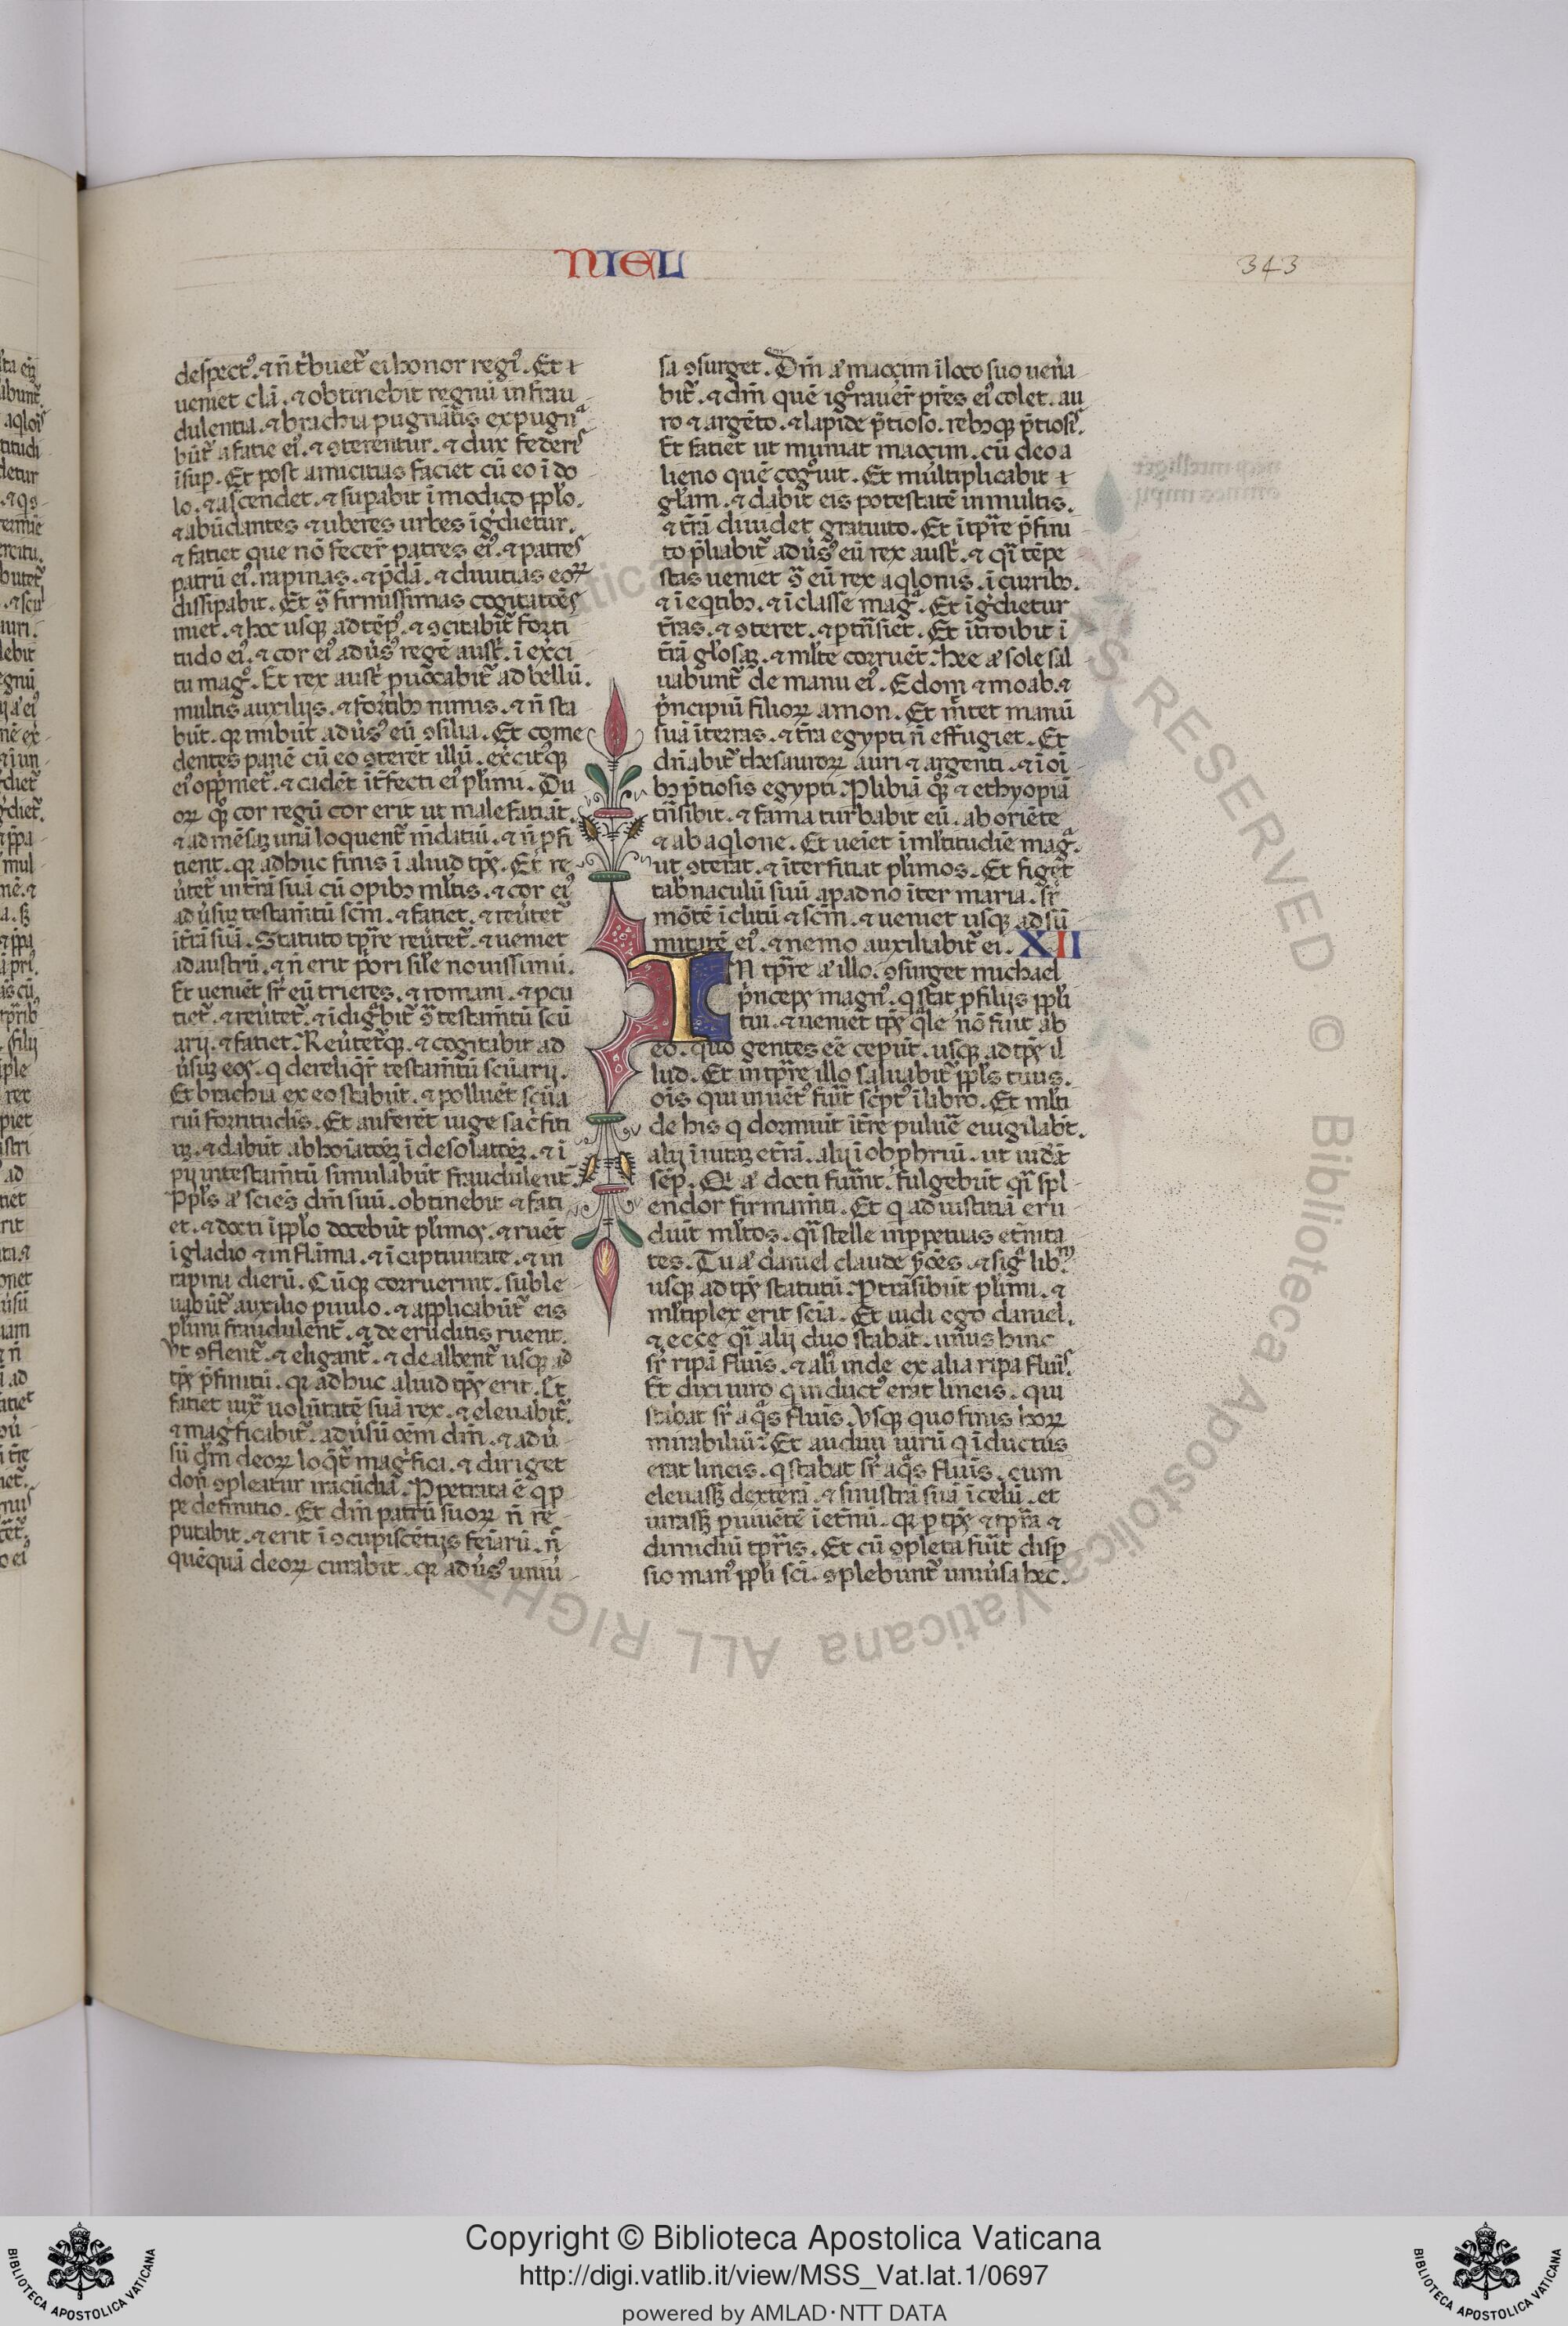 NIEL
343
despect᷒. ⁊ n̄ t̓buet᷑ ei honor regi᷒. Et ⁊
ueniet clā. ⁊ obtinebit regnū in frau
dulentia. ⁊ brachia pugnātis expugnᵃ
būt᷑ a facie ei᷒. ⁊ ꝯterentur. ⁊ dux federis
īsup̱. Et post amicitias faciet cū eo ī do
lo. ⁊ ascendet. ⁊ sup̱abit ī modico ppl̓o.
⁊ abūdantes ⁊ uberes urbes īg̓dietur.
⁊ faciet que nō fecer̄ patres ei᷒. ⁊ patres
patrū ei᷒. rapinas. ⁊ p̄dā. ⁊ diuitias eoꝝ
dissipabit. Et ꝯ̄ firmissimas cogitatōes
iniet. ⁊ hoc usqꝫ ad tēp᷒. ⁊ ꝯcitabit᷑ forti
tudo ei᷒. ⁊ cor ei᷒ adu̓s᷒ regē aust̓. ī ex̓ci
tu magͦ. Et rex aust̓ puocabit᷑ ad bellū.
multis auxilijs. ⁊ fortibꝫ nimis. ⁊ n̄ sta
būt. qꝛ inibūt adu̓s᷒ eū ꝯsilia. Et come
dentes panē cū eo ꝯterēt illū. ex̓citꝰqꝫ
ei᷒ opp̓met᷑. ⁊ cadēt īt̓fecti ei᷒ pl̓imi. Du
oꝝ qꝫ cor regū cor erit ut malefaciāt.
⁊ ad mēsaꝫ unā loquent᷑ mēdaciū. ⁊ n̄ ꝓfi
cient. qꝛ adhuc finis ī aliud tp̄s. Et re
u̓tet᷑ in tr̄ā suā cū opibꝫ ml̓tis. ⁊ cor ei᷒
adu̓suꝫ testam̄tū scm̄. ⁊ faciet. ⁊ reu̓tet᷑
ī tr̄ā suā. Statuto tp̄re reu̓tet᷑. ⁊ ueniet
ad austrū. ⁊ n̄ erit p̓ori sil̓e nouissimū.
Et ueniēt sr̄ eū trieres. ⁊ romani. ⁊ ꝑcu
tiet᷑. ⁊ reu̓tet᷑. ⁊ īdigͣbit᷑ ꝯ̄ testam̄tū scū
arij. ⁊ faciet. Reu̓tet᷑qꝫ. ⁊ cogitabit ad
u̓suꝫ eos. q̄ dereliq̓r̄ testam̄tū scūarij.
Et brachia ex eo stabūt. ⁊ polluēt scūa
riū fortitudīs. Et auferēt iuge sac̓fici
uꝫ. ⁊ dabūt abhoīatōeꝫ ī desolatōeꝫ. ⁊ ī
pij in testam̄tū simulabūt fraudulent᷑.
Ppl̓s aͥ sciēs dm̄ suū. obtinebit ⁊ faci
et. ⁊ docti ī ppl̓o docebūt pl̓imos. ⁊ ruēt
ī gladio ⁊ in flāma. ⁊ ī captiuitate. ⁊ in
rapina dierū. Cūqꝫ corruerint. suble
uabūt᷑ auxilio ꝑuulo. ⁊ applicabūt᷑ eis
pl̓imi fraudulent᷑. ⁊ de eruditis ruent.
Ut ꝯflent᷑. ⁊ eligant᷑. ⁊ dealbent᷑ usqꝫ ad
tp̄s p̄finitū. qꝛ adhuc aliud tp̄s erit. Et
faciet iux̄ uolūtatē suā rex. ⁊ eleuabit᷑.
⁊ mag̓ficabit᷑. adu̓sū oēm dm̄. ⁊ adu̓
sū dm̄ deoꝝ loq̄t᷑ mag̓fica. ⁊ diriget
don̄ ꝯpleatur iracūdia. Ꝑpetrata ē qꝑ
pe definitio. Et dm̄ patrū suoꝝ n̄ re
putabit. ⁊ erit ī ꝯcupiscētijs feīarū. n̄
quēquā deoꝝ curabit. qꝛ adu̓s᷒ uniu̓
sa ꝯsurget. Dm̄ aͥ maozim ī loco suo uenͣa
bit᷑. ⁊ dm̄ quē igͦrauer̄ pr̄es ei᷒ colet. au
ro ⁊ argēto. ⁊ lapide p̄tioso. rebꝫqꝫ p̄tiosis.
Et faciet ut muniat maozim. cū deo a
lieno quē cogͦuit. Et multiplicabit ⁊
gl̓am. ⁊ dabit eis potestatē in multis.
⁊ tr̄ā diuidet gratuito. Et ī tp̄re p̄fini
to p̄liabit᷑ adu̓s᷒ eū rex aust̓. ⁊ qͣi tēpe
stas ueniet ꝯ̄ eū rex aqͥlonis. ī curribꝫ.
⁊ ī eqͥtibꝫ. ⁊ ī classe magͣ. Et īg̓dietur
tr̄as. ⁊ ꝯteret. ⁊ ꝑtn̄siet. Et ītroibit ī
tr̄ā gl̓osaꝫ. ⁊ ml̓te corruēt. hee aͥ sole sal
uabunt᷑ de manu ei᷒. Edom ⁊ moab. ⁊
p̓ncipiū filioꝝ amon. Et m̄tet manū
suā ī terras. ⁊ tr̄a egypti n̄ effugiet. Et
dn̄abit᷑ thesauroꝝ auri ⁊ argenti. ⁊ ī oī
bꝫ p̄tiosis egypti. Ꝑ libiā qꝫ ⁊ ethyopiā
tn̄sibit. ⁊ fama turbabit eū. ab oriēte
⁊ ab aqͥlone. Et ueīet ī ml̓titudīe magͣ.
ut ꝯterat. ⁊ īterficiat pl̓imos. Et figet
tab̓naculū suū apadno īter maria. sr̄
mōtē īclitū ⁊ scm̄. ⁊ ueniet usqꝫ ad sū
mitatē ei᷒. ⁊ nemo auxiliabit᷑ ei. XII
IN tp̄re aͥ illo. ꝯsurget michael
p̓nceps magn᷒. q̄ stat ꝓ filijs ppl̓i
tui. ⁊ ueniet tp̄s qͣle nō fuit ab
eo. quo gentes eē cepūt. usqꝫ ad tp̄s il
lud. Et in tp̄re illo saluabit᷑ ppl̓s tuus.
oīs qui inuēt᷒ fuit sc̓pt᷒ ī libro. Et ml̓ti
de his q̄ dormiūt ī tr̄e puluē euigilabt̄.
alij ī uitaꝫ et̓nā. alij ī obp̓briū. ut uideāt
sēp̱. Qͥ aͥ docti fuīnt. fulgebūt qͣi spl
endor firmam̄ti. Et q̄ ad iustitiā eru
diūt ml̓tos. qͣi stelle in ppetuas et̓nita
tes. Tu aͥ daniel claude s̓mōes. ⁊ sigͣ libᵐ.
usqꝫ ad tp̄s statutū. Ꝑtrāsibūt pl̓imi. ⁊
ml̓tiplex erit scīa. Et uidi ego daniel.
⁊ ecce qͣi alij duo stabāt. unus hinc
sr̄ ripā fluīs. ⁊ ali᷒ inde ex alia ripa fluīs.
Et dixi uiro q̄ induct᷒ erat lineis. qui
stabat sr̄ aqͣs fluīs. Usqꝫ quo finis hoꝝ
mirabiliū? Et audiui uirū q̄ īductus
erat lineis. q̄ stabat sr̄ aqͣs fluīs. cum
eleuassꝫ dexterā. ⁊ sinistrā suā ī celū. et
iurassꝫ ꝑ uiuētē ī et̓nū. qꝛ ꝑ tp̄s ⁊ tp̄ra ⁊
dimidiū tp̄ris. Et cū ꝯpleta fuīt disꝑ
sio man᷒ ppl̓i sci. ꝯplebunt᷑ uniu̓sa hec.
Copyright © Biblioteca Apostolica Vaticana
http://digi.vatlib.it/view/MSS_Vat.lat.1/0697
powered by AMLAD·NTT DATA